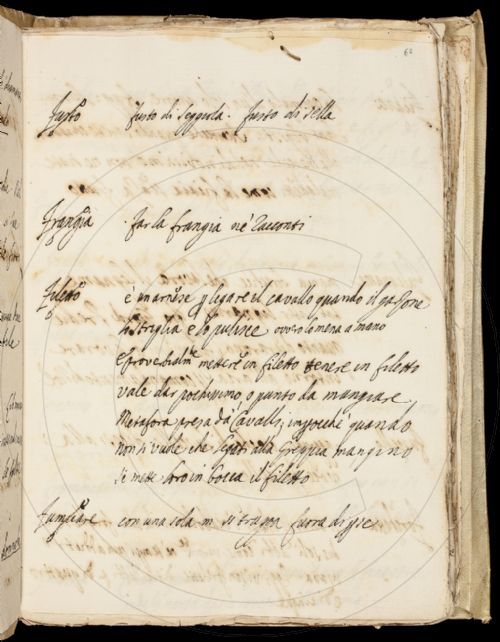 60
Fusto fusto di seggiola. fusto di sella
Frangia far la frangia ne' racconti
Filetto è un arnese p legare il cavallo quando il garzone
lo striglia e lo pulisce ovvero lo mena a mano
e proverbialm.te mettere in filetto tenere in filetto
vale dar pochissimo o punto da mangiare
Metafora presa da' Cavalli, imperochè quando
non si vuole che legati alla Greppia mangino
si mette loro in bocca il filetto
con una sola m si trapon fuora di